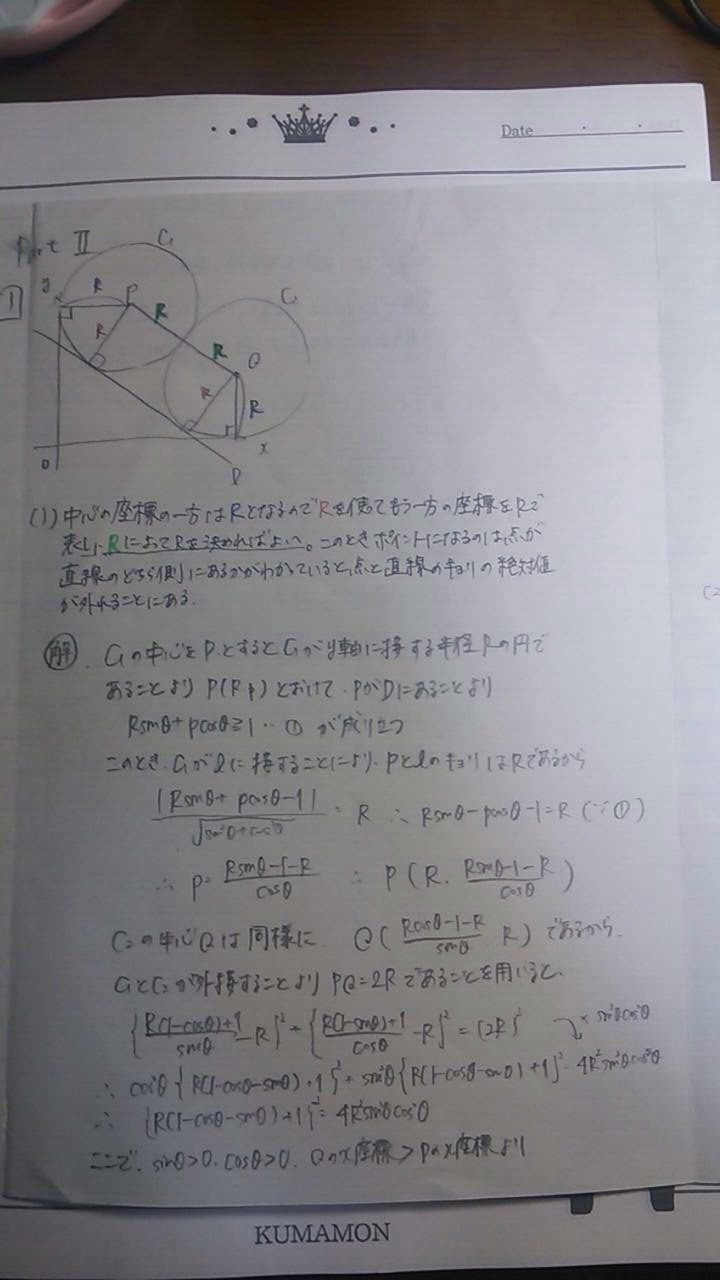 Date
Part II
1
y
C₁
R
P
R
R
C₂
R
Q
R
R
0
x
l
(1) 中心の座標の一方はRとなるのでRを使ってもう一方の座標をRで
表し、RによってRを決めればよい。このときポイントになるのは、点が
直線のどちら側にあるかがわかっていると、点と直線のキョリの絶対値
が外れることにある.
解. C₁の中心をPとするとC₁がy軸に接する半径Rの円で
あることより P(R, p) とおけて. PがDにあることより
Rsinθ+pcosθ≧1 … ① が成り立つ
このとき. C₁がlに接することにより. PとlのキョリはRであるから
|Rsinθ+pcosθ-1| / √sin²θ+cos²θ = R ∴ Rsinθ-pcosθ-1=R (∵①)
∴ p= Rsinθ-1-R / cosθ ∴ P(R, Rsinθ-1-R / cosθ)
C₂の中心Qは同様に. Q( Rcosθ-1-R / sinθ R) であるから.
C₁とC₂が外接することより PQ=2Rであることを用いると、
{ R(1-cosθ)+1 / sinθ -R }² + { R(1-sinθ)+1 / cosθ -R }² = (2R)² × sin²θcos²θ
∴ cos²θ{R(1-cosθ-sinθ)+1}²+sin²θ{R(1-cosθ-sinθ)+1}² = 4R²sin²θcos²θ
∴ {R(1-cosθ-sinθ)+1}² = 4R²sin²θcos²θ
ここで. sinθ>0. cosθ>0. Qのx座標>Pのx座標より
KUMAMON